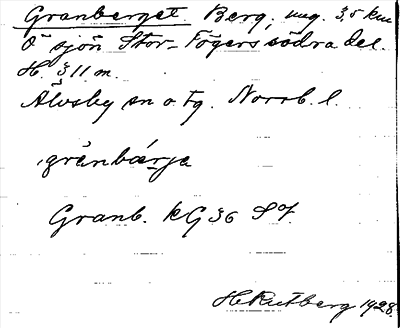 Granberget. Berg, ung. 3,5 km
Ö sjön Stor-Tögers södra del.
H. 311 m.
Älvsby sn o. tg. Norrb. l.
granbärje
Granb. KG 36 Sof
H Rutberg 1928.